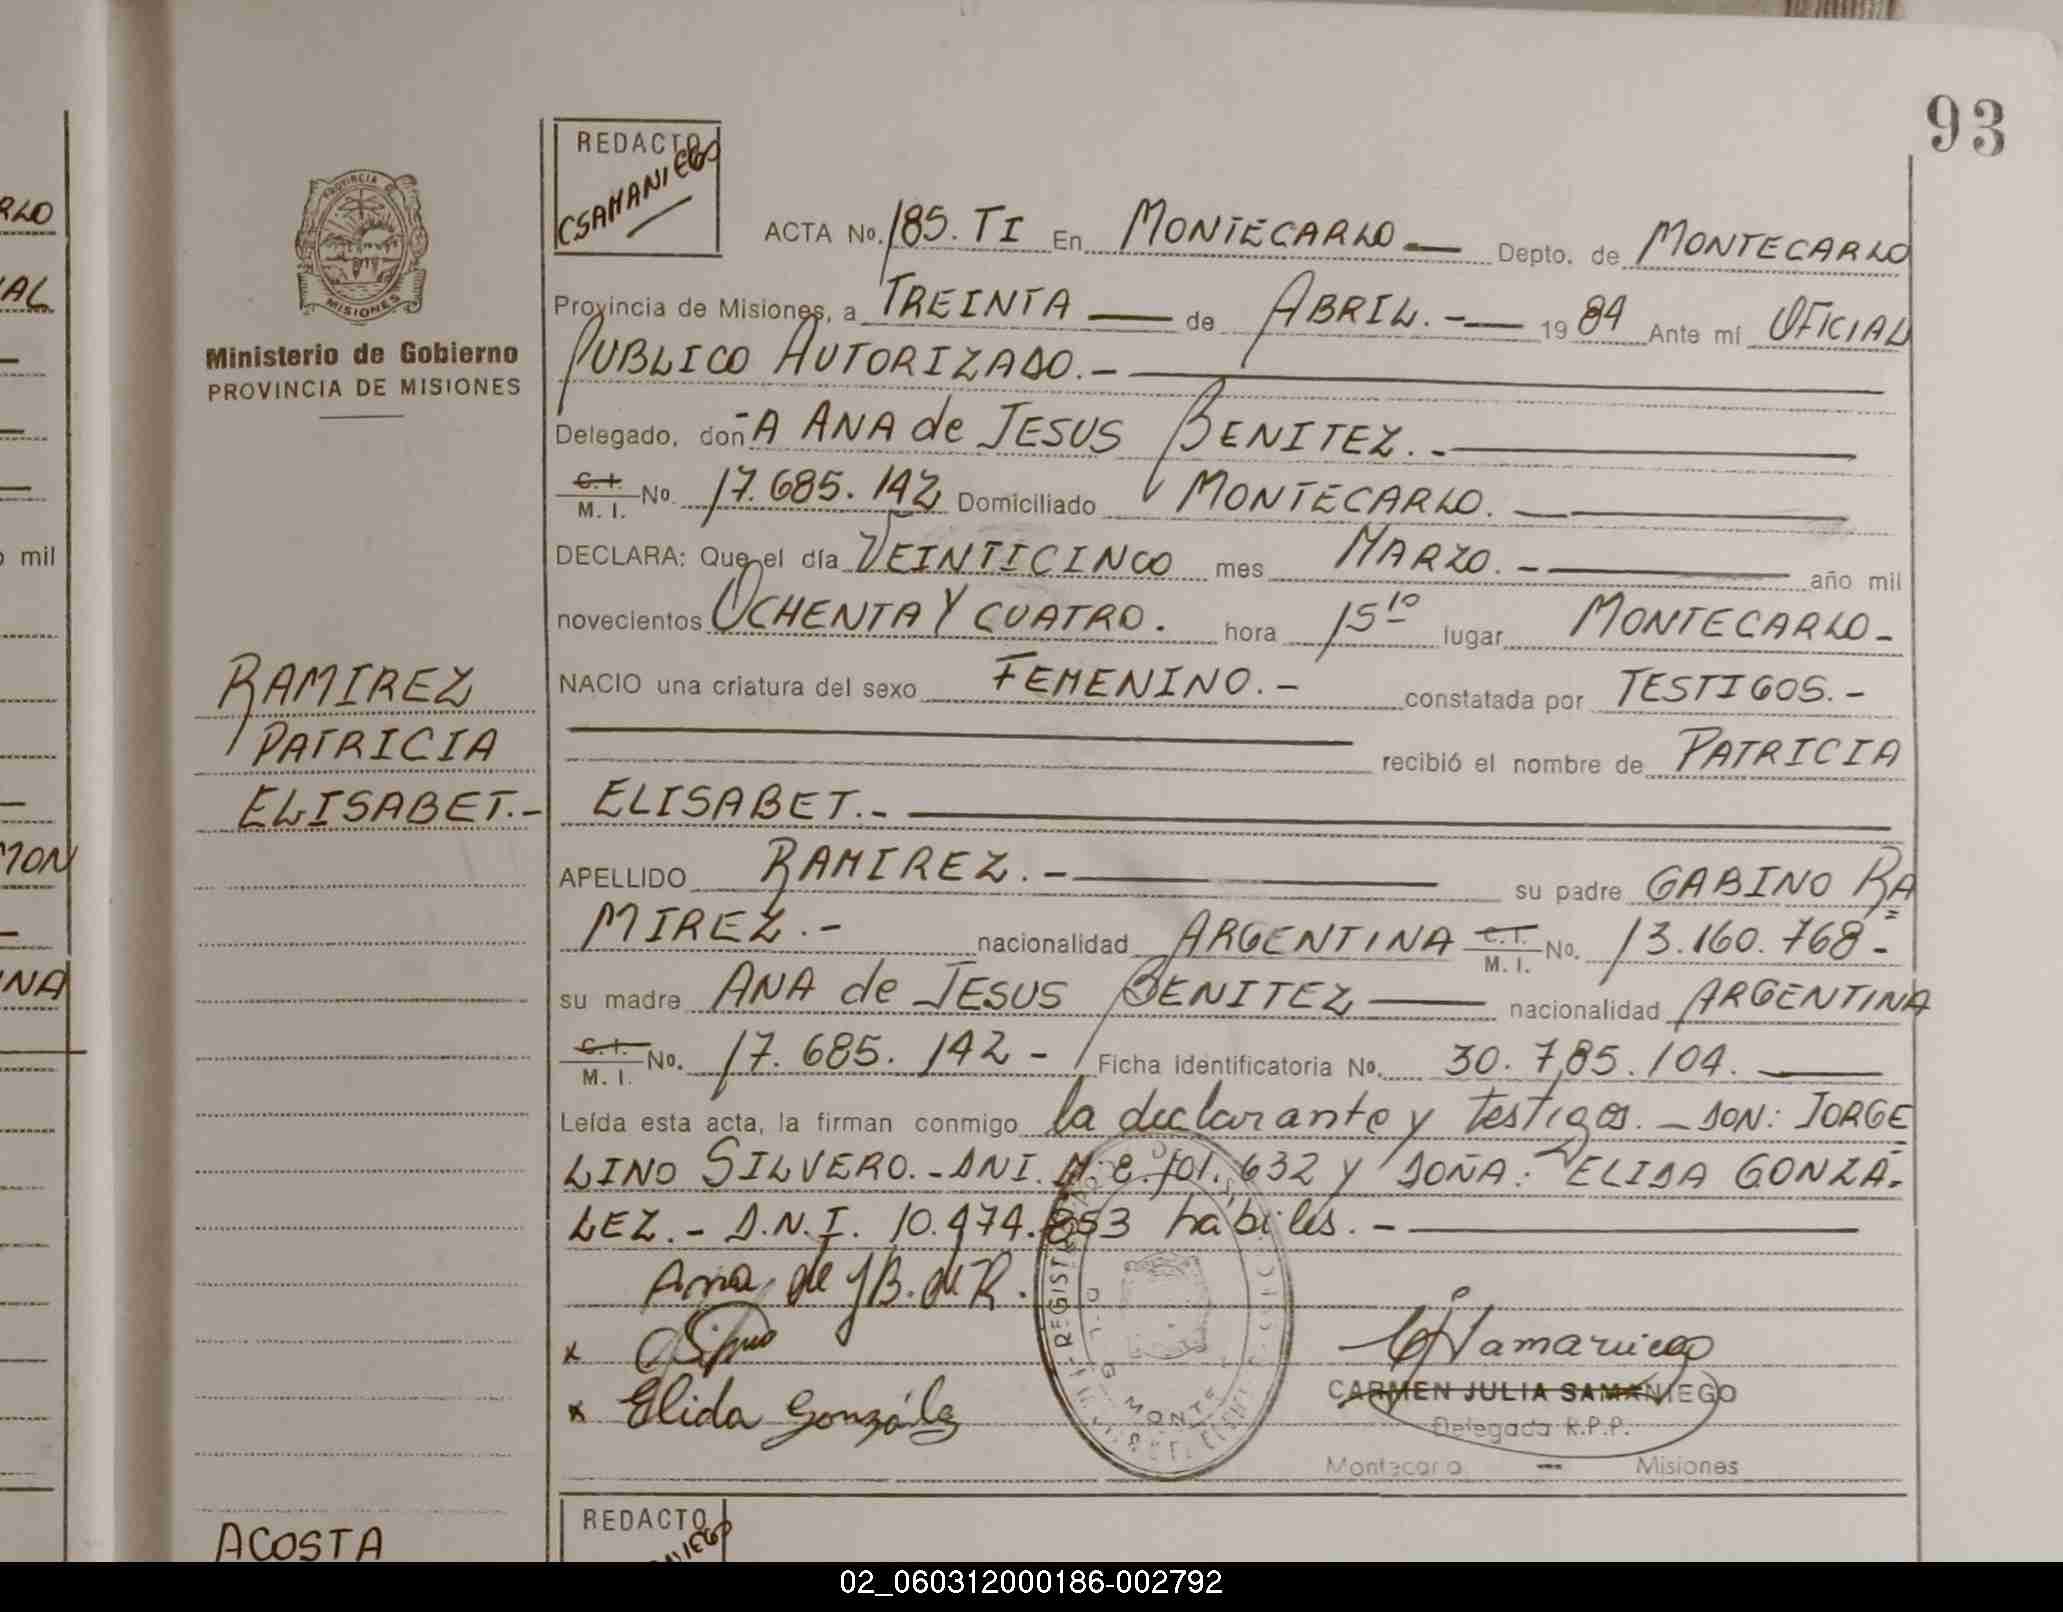 93
REDACTO
CSAMANIEGO
PROVINCIA DE
MISIONES
Ministerio de Gobierno
PROVINCIA DE MISIONES
ACTA No. 185. TI En MONTECARLO Depto. de MONTECARLO
Provincia de Misiones, a TREINTA de ABRIL.- 1984 Ante mí OFICIAL
PUBLICO AUTORIZADO.-
Delegado, doñA ANA de JESUS BENITEZ.-
C. I. / M. I. No. 17.685.142 Domiciliado MONTECARLO.
DECLARA: Que el día VEINTICINCO mes MARZO.- año mil
novecientos OCHENTA Y CUATRO. hora 15 10 lugar MONTECARLO-
NACIO una criatura del sexo FEMENINO.- constatada por TESTIGOS.-
recibió el nombre de PATRICIA
ELISABET.-
RAMIREZ
PATRICIA
ELISABET.-
APELLIDO RAMIREZ.- su padre GABINO RA=
MIREZ.- nacionalidad ARGENTINA C. I. / M. I. No. 13.160.768-
su madre ANA de JESUS BENITEZ nacionalidad ARGENTINA
C. I. / M. I. No. 17.685.142- Ficha identificatoria No. 30.785.104.
Leída esta acta, la firman conmigo la declarante y testigos.- DON: JORGE
LINO SILVERO.- DNI. M: 8.101.632 Y DOÑA: ELIDA GONZÁ-
LEZ.- D.N.I. 10.474.853 hábiles.-
Ana de J B. de R.
x
x Elida González
CSamaniego
CARMEN JULIA SAMANIEGO
Delegada R.P.P.
Montecarlo - Misiones
REDACTO
ACOSTA
RLO
IAL
o mil
MON
INA
02_060312000186-002792